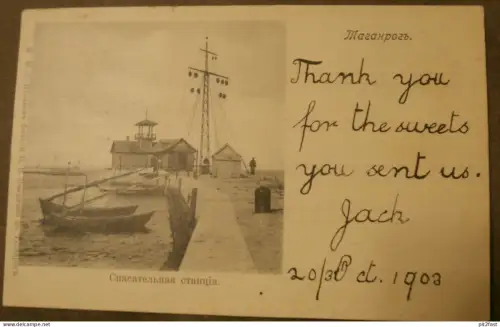 Таганрогъ.
Thank you
for the sweets
you sent us.
Jack
Спасательная станція.